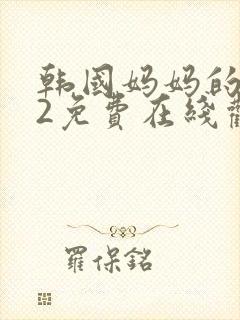 韩国妈妈的
2免费在线
羅保銘